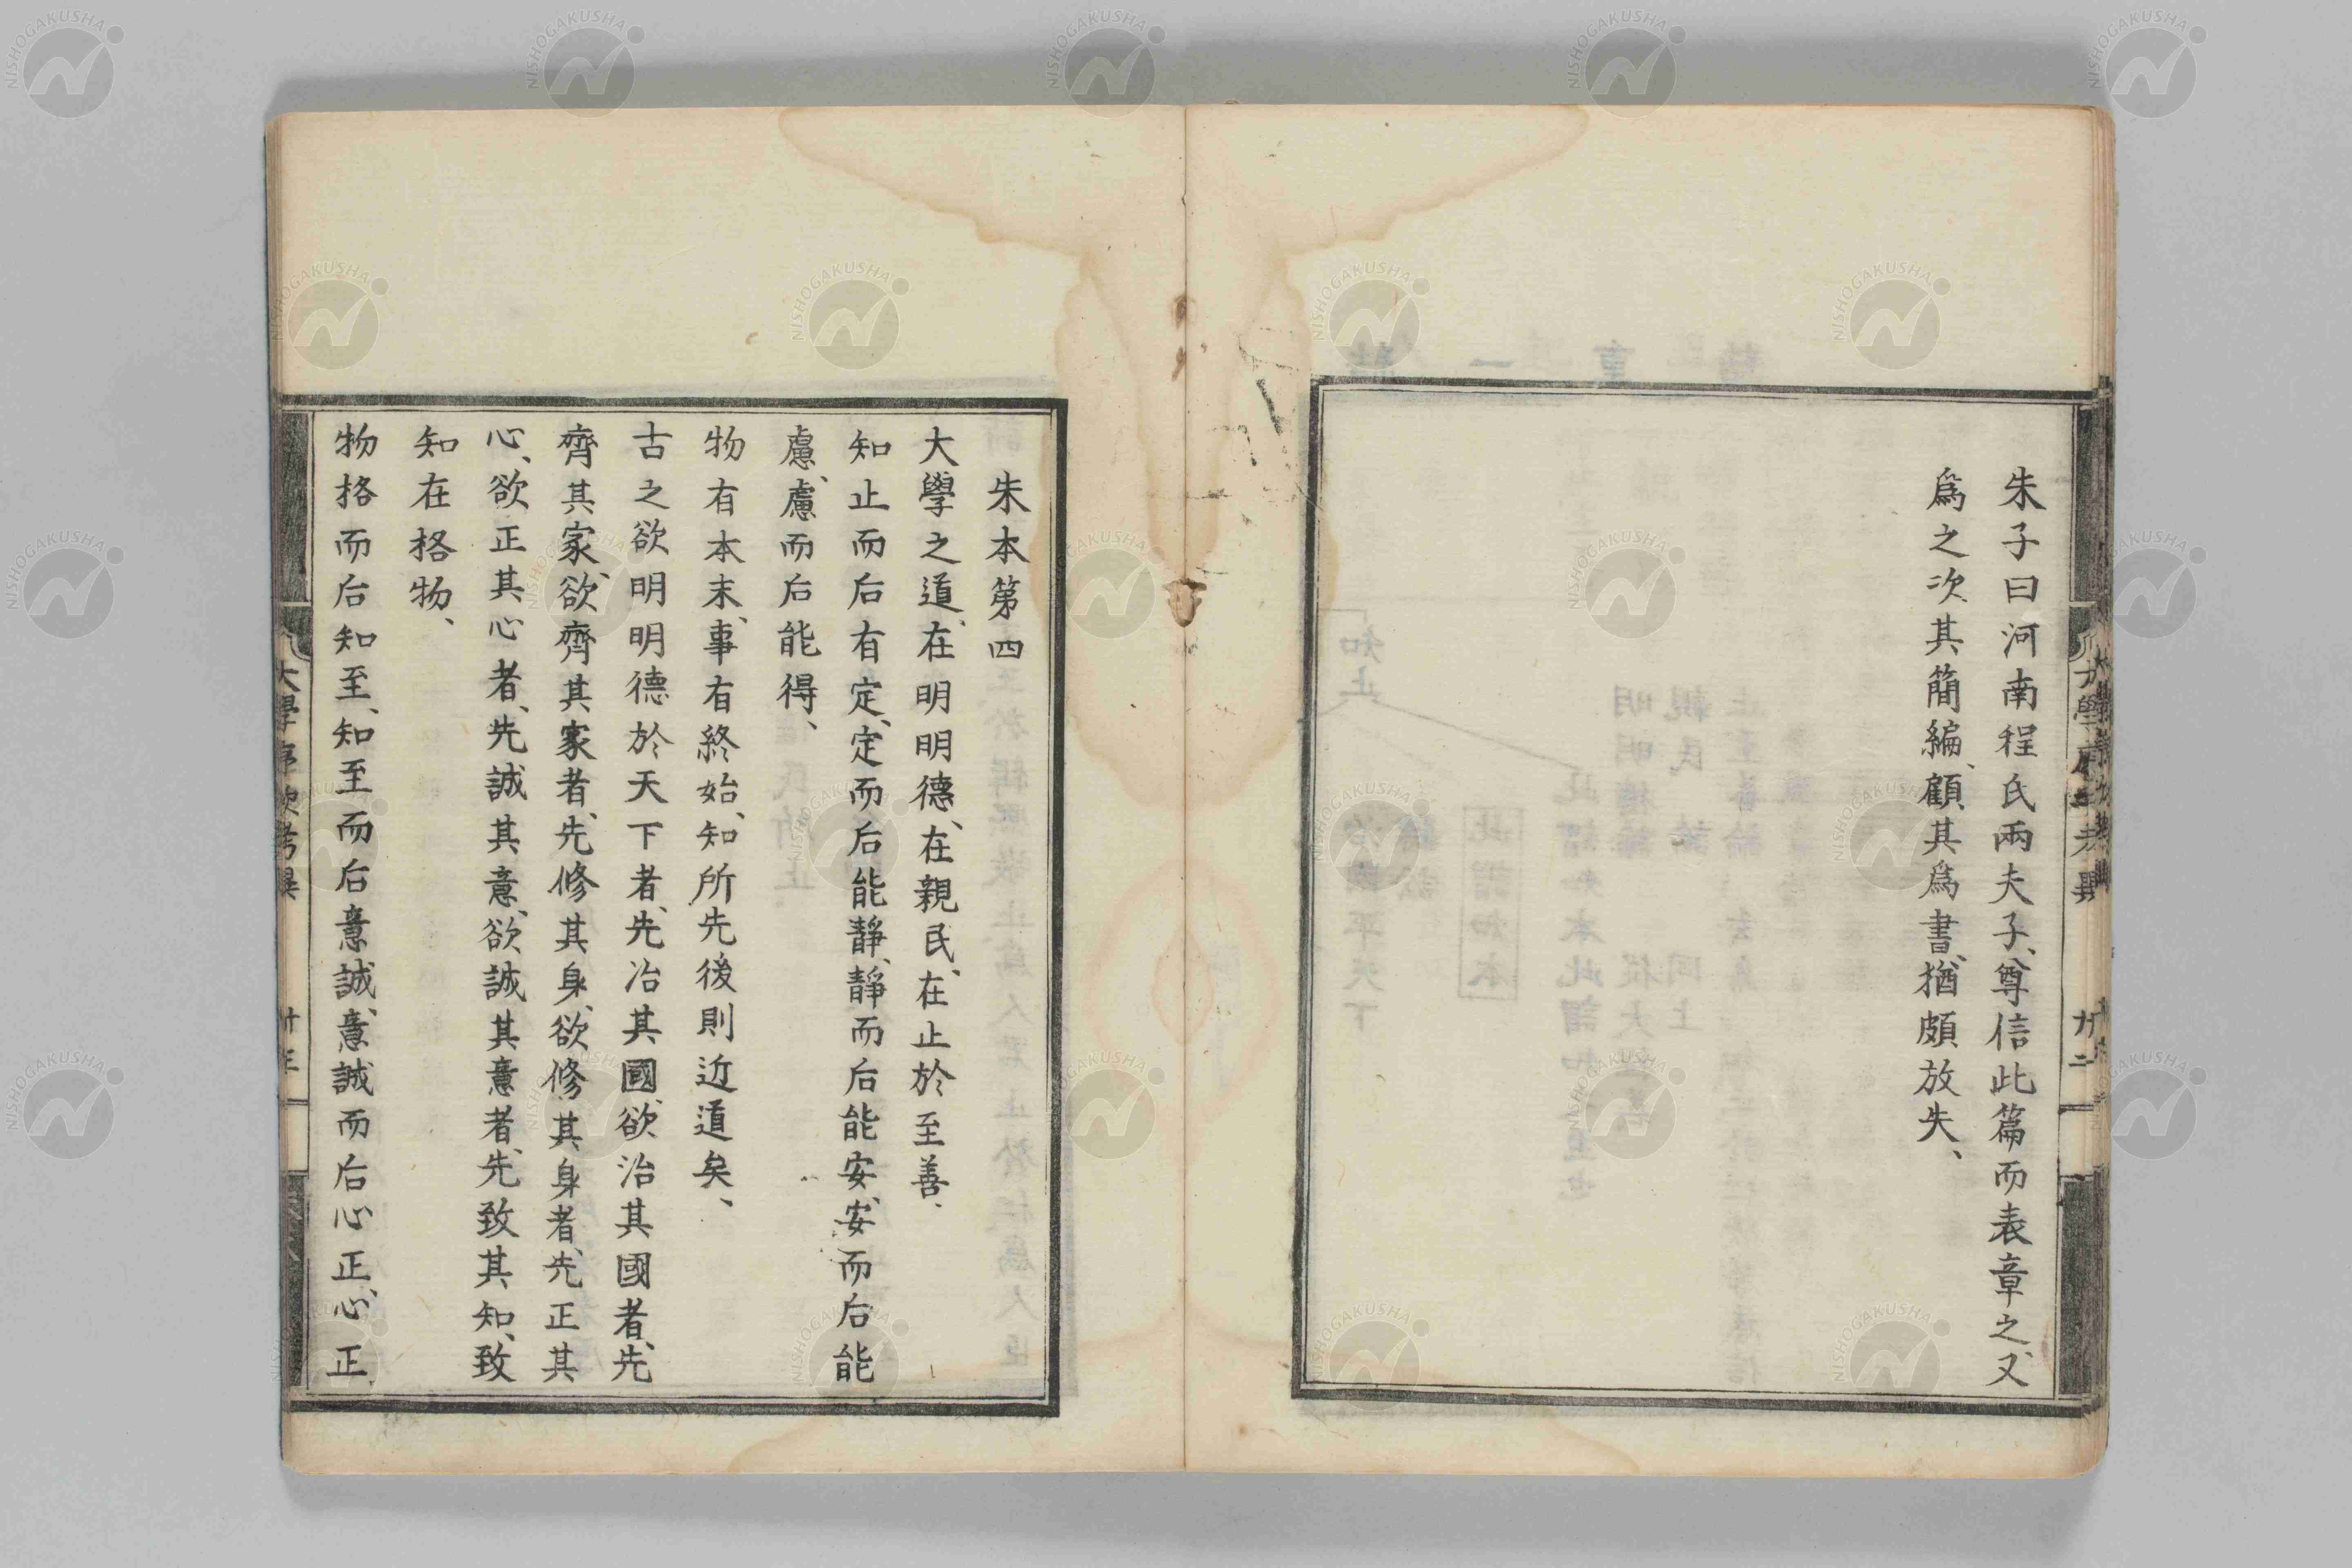 朱子曰河南程氏兩夫子、尊信此篇而表章之、又
爲之次、其簡編、顧其爲書、猶頗放失、
朱本第四
大學之道、在明明德、在親民、在止於至善、
知止而后有定、定而后能靜、靜而后能安、安而后能
慮、慮而后能得、
物有本末、事有終始、知所先後則近道矣、
古之欲明明德於天下者、先治其國、欲治其國者、先
齊其家、欲齊其家者、先修其身、欲修其身者、先正其
心、欲正其心者、先誠其意、欲誠其意者、先致其知、致
知在格物、
物格而后知至、知至而后意誠、意誠而后心正、心正
大學序次考異
NISHOGAKUSHA